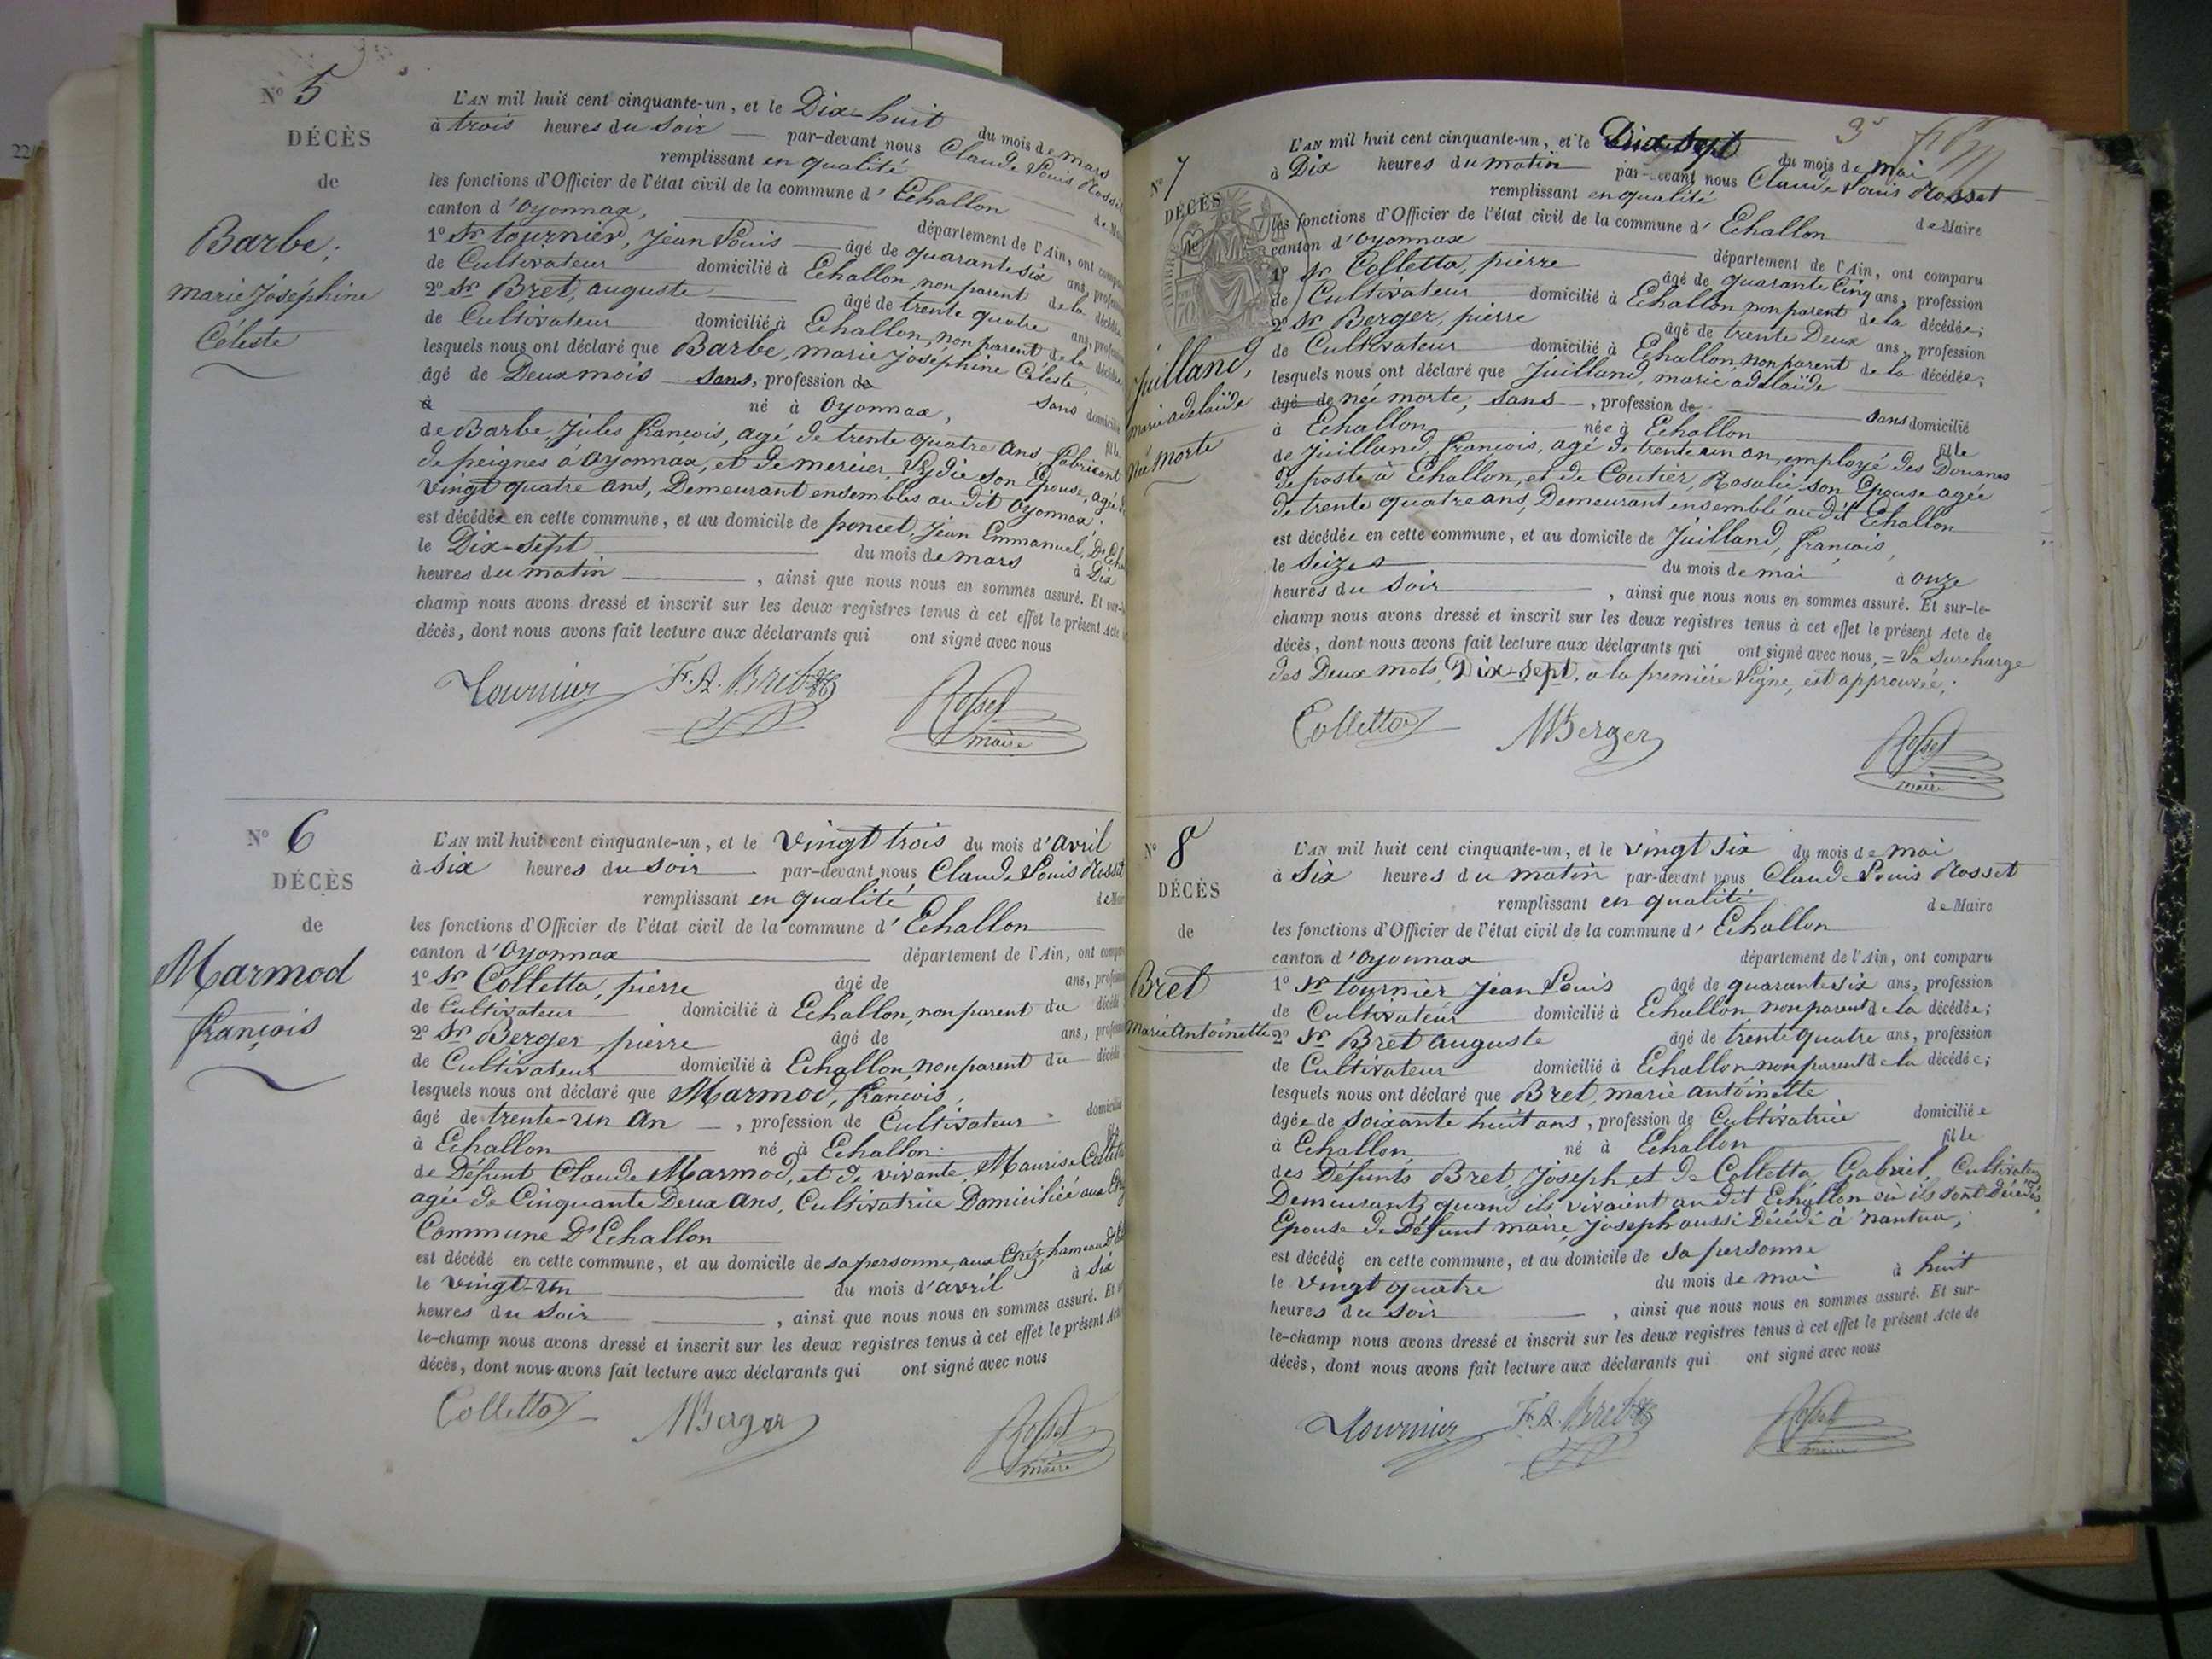 22
N° 5
DÉCÈS
de
Barbe,
marie Joséphine
Céleste
L'AN mil huit cent cinquante-un, et le Dix-huit du mois de mars
à trois heures du Soir par-devant nous Claude Louis Rosset
remplissant en qualité de Maire
les fonctions d'Officier de l'état civil de la commune d'Echallon
canton d'Oyonnax, département de l'Ain, ont comparu
1° Sr tournier, Jean Louis âgé de quarante six ans, profession
de Cultivateur domicilié à Echallon, non parent de la décédée
2° Sr Bret, auguste âgé de trente quatre ans, profession
de Cultivateur domicilié à Echallon, non parent de la décédée
lesquels nous ont déclaré que Barbe, marie Joséphine Céleste,
âgé de Deux mois sans, profession de sans domicilié
à né à Oyonnax, fille
de Barbe Jules françois, agé de trente quatre ans, fabricant
de peignes à Oyonnax, et de mercier, Lydie son Epouse, agée de
vingt quatre ans, Demeurant ensembles au dit Oyonnax,
est décédée en cette commune, et au domicile de poncet, Jean Emmanuel, D'Echallon
le Dix-Sept du mois de mars à Dix
heures du matin, ainsi que nous nous en sommes assuré. Et sur-le-
champ nous avons dressé et inscrit sur les deux registres tenus à cet effet le présent Acte de
décès, dont nous avons fait lecture aux déclarants qui ont signé avec nous
Tournier F. A. Bret Rosset
maire
N° 6
DÉCÈS
de
Marmod
françois
L'AN mil huit cent cinquante-un, et le vingt trois du mois d'avril
à six heures du soir par-devant nous Claude Louis Rosset
remplissant en qualité de Maire
les fonctions d'Officier de l'état civil de la commune d'Echallon
canton d'Oyonnax département de l'Ain, ont comparu
1° Sr Colletta, pierre âgé de ans, profession
de Cultivateur domicilié à Echallon, non parent du décédé
2° Sr Berger, pierre âgé de ans, profession
de Cultivateur domicilié à Echallon, non parent du décédé
lesquels nous ont déclaré que Marmod, françois,
âgé de trente-un an, profession de Cultivateur domicilié
à Echallon né à Echallon fils
de Défunt Claude Marmod, et de vivante, Maurise Colletta
agée de Cinquante Deux ans, Cultivatrice Domiciliée aux Crêz
Commune D'Echallon
est décédé en cette commune, et au domicile de sa personne, aux Crêz, hameau
le vingt-un du mois d'avril à six
heures du soir, ainsi que nous nous en sommes assuré. Et sur-
le-champ nous avons dressé et inscrit sur les deux registres tenus à cet effet le présent Acte
décès, dont nous avons fait lecture aux déclarants qui ont signé avec nous
Colletta MBerger Rosset
maire
3e
N° 7
DÉCÈS
de
Juilland,
marie adelaïde
Née morte
L'AN mil huit cent cinquante-un, et le Dix-Sept du mois de mai
à Dix heures du matin par-devant nous Claude Louis Rosset
remplissant en qualité de Maire
les fonctions d'Officier de l'état civil de la commune d'Echallon
canton d'Oyonnax département de l'Ain, ont comparu
1° Sr Colletta, pierre âgé de quarante Cinq ans, profession
de Cultivateur domicilié à Echallon non parent de la décédée;
2° Sr Berger, pierre âgé de trente Deux ans, profession
de Cultivateur domicilié à Echallon, non parent de la décédée;
lesquels nous ont déclaré que Juilland, marie adelaïde
âgé de née morte, sans, profession de sans domicilié
à Echallon née à Echallon fille
de Juilland, françois, agé de trente un an, employé des Douanes
de poste à Echallon, et de Coutier, Rosalie son Epouse agée
de trente quatre ans, Demeurant ensemble au dit Echallon
est décédée en cette commune, et au domicile de Juilland, françois,
le Seize du mois de mai à onze
heures du Soir, ainsi que nous nous en sommes assuré. Et sur-le-
champ nous avons dressé et inscrit sur les deux registres tenus à cet effet le présent Acte de
décès, dont nous avons fait lecture aux déclarants qui ont signé avec nous, = La Surcharge
des Deux mots, Dix-Sept, a la première Ligne, est approuvée;
Colletta MBerger Rosset
maire
N° 8
DÉCÈS
de
Bret
Marie Antoinette
L'AN mil huit cent cinquante-un, et le vingt six du mois de mai
à Six heures du matin par-devant nous Claude Louis Rosset
remplissant en qualité de Maire
les fonctions d'Officier de l'état civil de la commune d'Echallon
canton d'Oyonnax département de l'Ain, ont comparu
1° Sr tournier Jean Louis âgé de quarante six ans, profession
de Cultivateur domicilié à Echallon non parent de la décédée;
2° Sr Bret auguste âgé de trente quatre ans, profession
de Cultivateur domicilié à Echallon, non parent de la décédée;
lesquels nous ont déclaré que Bret, marie antoinette
âgée de soixante huit ans, profession de Cultivatrice domiciliée
à Echallon, né à Echallon fille
des Défunts Bret, Joseph et de Colletta, Gabriel, Cultivateurs
Demeurant, quand ils vivaient au dit Echallon où ils sont Décédés
Epouse de Défunt maire, Joseph aussi Décédé à Nantua;
est décédé en cette commune, et au domicile de sa personne
le vingt quatre du mois de mai à huit
heures du soir, ainsi que nous nous en sommes assuré. Et sur-
le-champ nous avons dressé et inscrit sur les deux registres tenus à cet effet le présent Acte de
décès, dont nous avons fait lecture aux déclarants qui ont signé avec nous
Tournier F. A. Bret Rosset
maire